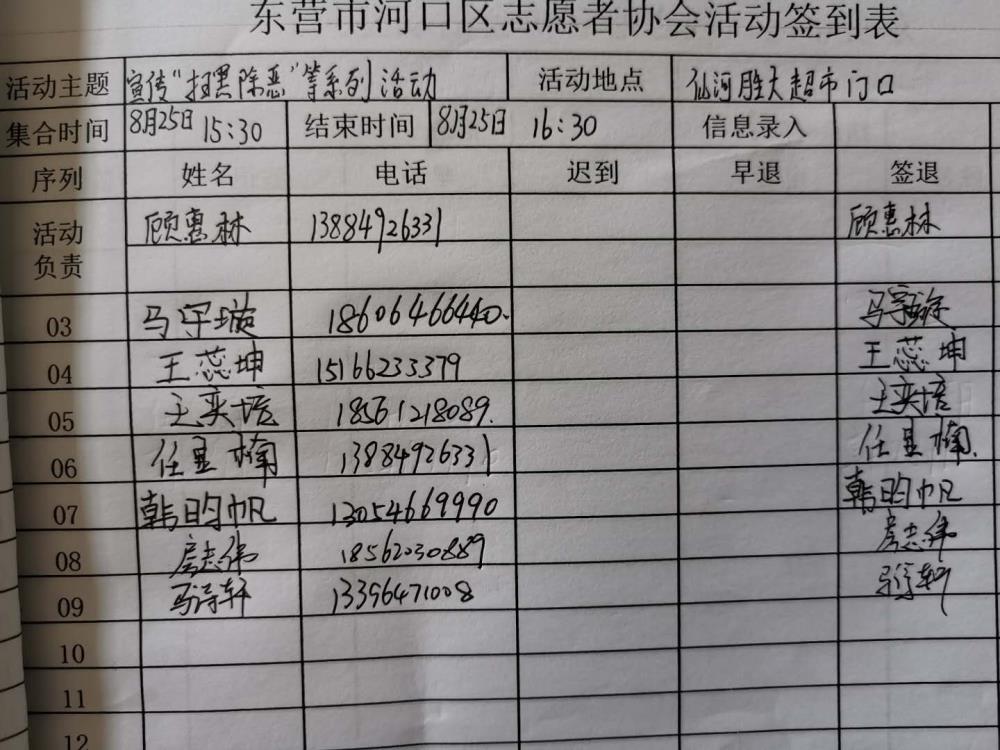 东营市河口区志愿者协会活动签到表
活动主题 宣传“扫黑除恶”等系列活动 活动地点 仙河胜大超市门口
集合时间 8月25日 15:30 结束时间 8月25日 16:30 信息录入
序列 姓名 电话 迟到 早退 签退
活动负责 顾惠林 13884926331 顾惠林
03 马宇璇 18606466440. 马宇璇
04 王蕊坤 15166233379 王蕊坤
05 王奕培 18561218089. 王奕培
06 任显楠 13884926331 任显楠.
07 韩昀帆 13054669990 韩昀帆
08 房志伟 18562030889 房志伟
09 马诗轩 13396471008
10
11
12